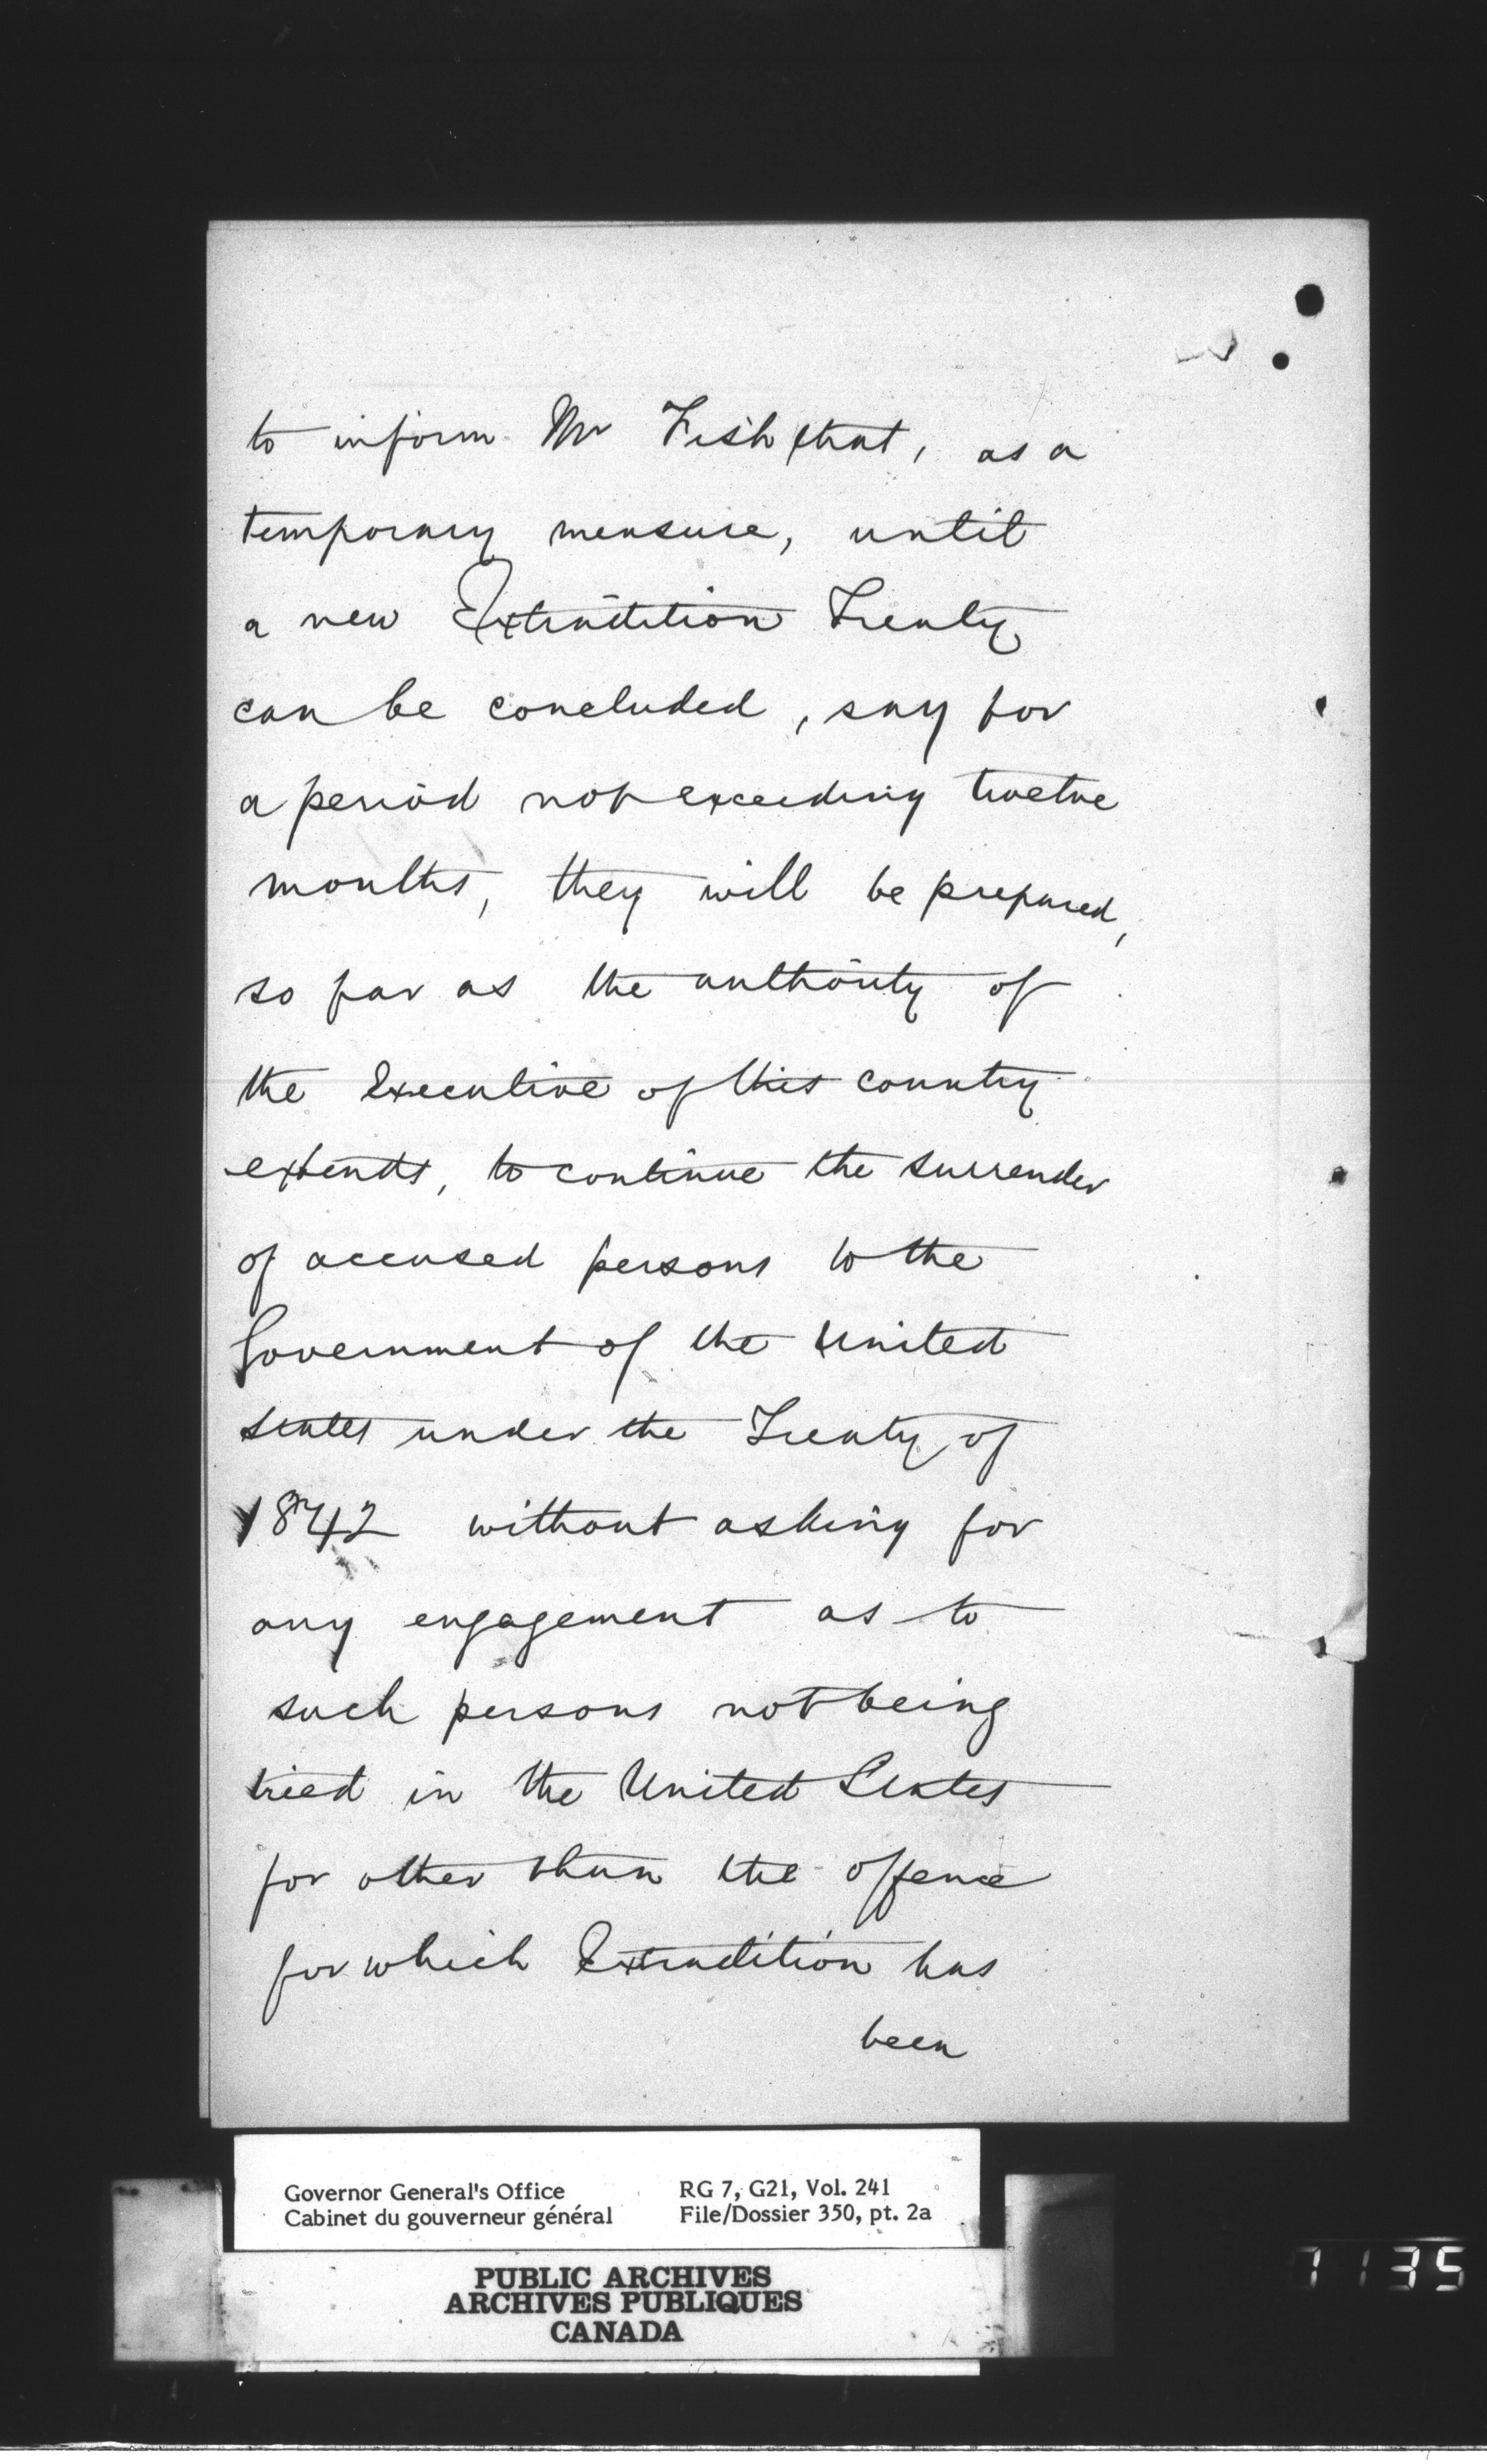 to inform Mr Fish that, as a
temporary measure, until
a new Extradition Treaty
can be concluded, say for
a period not exceeding twelve
months, they will be prepared,
so far as the authority of
the Executive of this country
extends, to continue the surrender
of accused persons to the
Government of the United
States under the Treaty of
1842 without asking for
any engagement as to
such persons not being
tried in the United States
for other than the offence
for which Extradition has
been
Governor General's Office RG 7, G21, Vol. 241
Cabinet du gouverneur général File/Dossier 350, pt. 2a
PUBLIC ARCHIVES
ARCHIVES PUBLIQUES
CANADA
7135